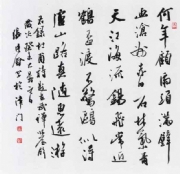 何年顧虎頭滿壁
畫滄州赤日石林氣青
天江海流錫飛常近
鶴杯渡不驚鷗似得
廬山路真隨惠遠遊
杜甫詩題玄武禪師屋壁
於津門